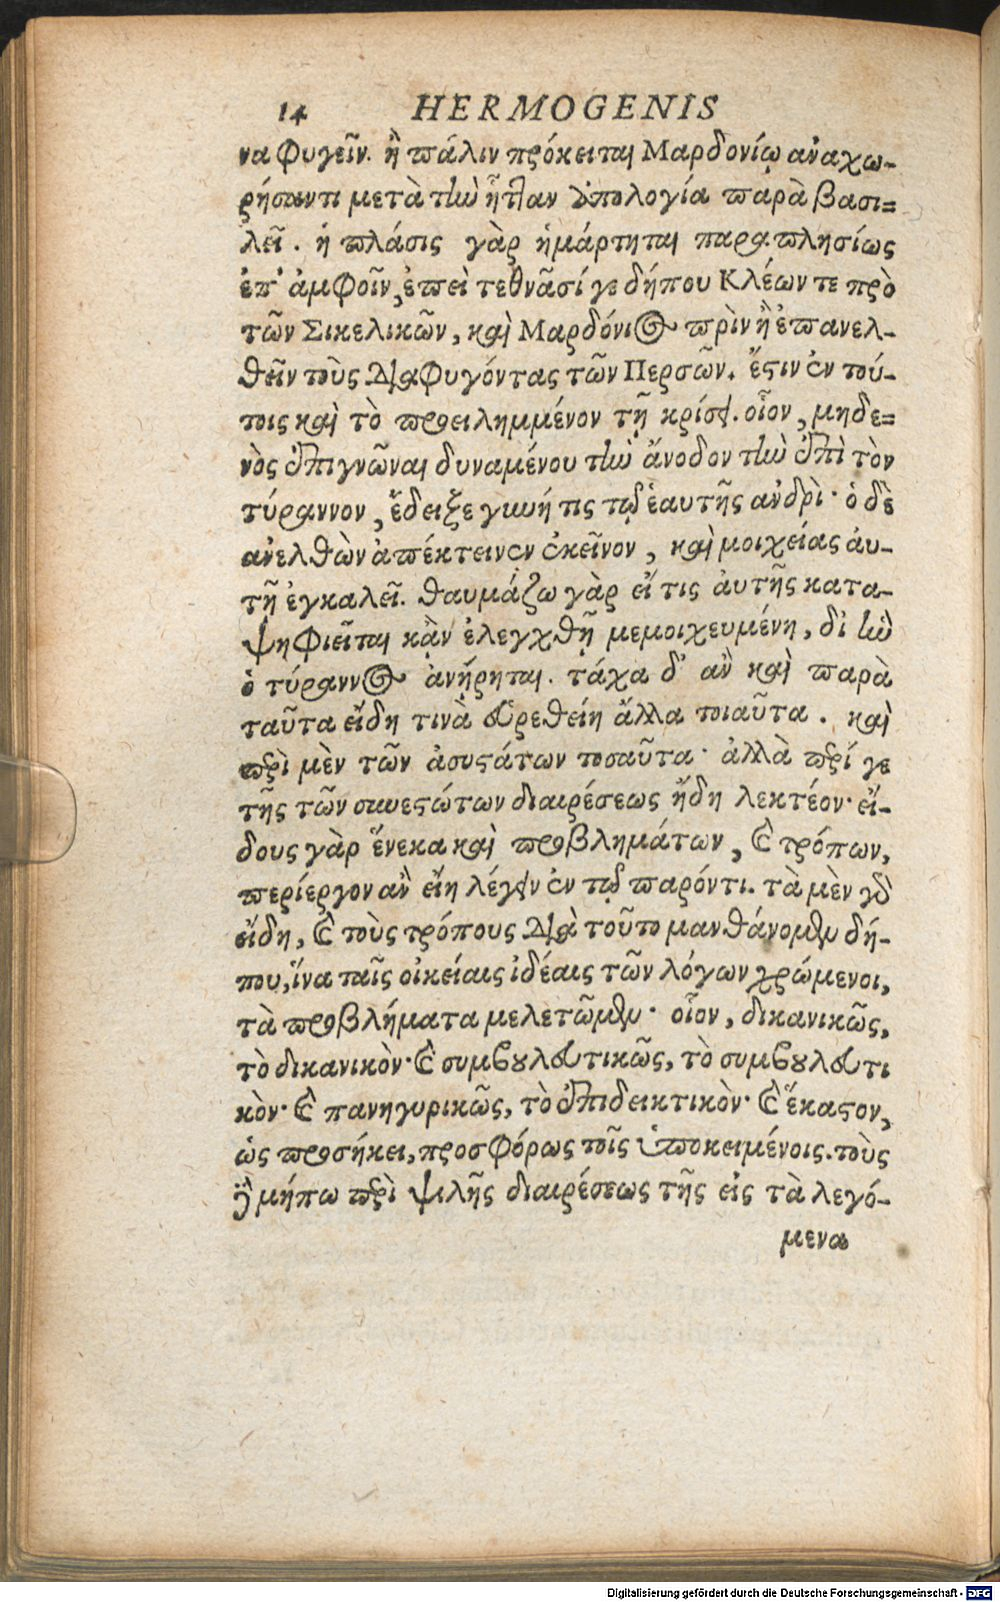 14 HERMOGENIS
να φυγεῖν. ἢ πάλιν πρόκειται Μαρδονίῳ ἀναχω-
ρήσαντι μετὰ τὴν ἧτταν ἀπολογία παρὰ βασι=
λεῖ. ἡ πλάσις γὰρ ἡμάρτηται παραπλησίως
ἐπ' ἀμφοῖν, ἐπεὶ τεθνᾶσί γε δήπου Κλέων τε πρὸ
τῶν Σικελικῶν, καὶ Μαρδόνιος πρὶν ἢ ἐπανελ-
θεῖν τοὺς διαφυγόντας τῶν Περσῶν. ἔστιν ἐν τού-
τοις καὶ τὸ προειλημμένον τῇ κρίσει. οἷον, μηδε=
νὸς ἐπιγνῶναι δυναμένου τὴν ἄνοδον τὴν ἐπὶ τὸν
τύραννον, ἔδειξε γυνή τις τῷ ἑαυτῆς ἀνδρὶ· ὁ δὲ
ἀνελθὼν ἀπέκτεινεν ἐκεῖνον, καὶ μοιχείας ἀυ-
τῇ ἐγκαλεῖ. θαυμάζω γὰρ εἴ τις ἀυτῆς κατα-
ψηφιεῖται κᾂν ἐλεγχθῇ μεμοιχευμένη, δι' ἣν
ὁ τύραννος ἀνῄρηται. τάχα δ' ἂν καὶ παρὰ
ταῦτα εἴδη τινὰ εὑρεθείη ἄλλα τοιαῦτα. καὶ
περὶ μὲν τῶν ἀσυστάτων τοσαῦτα· ἀλλὰ περί γε
τῆς τῶν συνεστώτων διαιρέσεως ἤδη λεκτέον· εἴ-
δους γὰρ ἕνεκα καὶ προβλημάτων, καὶ τρόπων,
περίεργον ἂν εἴη λέγειν ἐν τῷ παρόντι. τὰ μὲν γὰρ
εἴδη, καὶ τοὺς τρόπους διὰ τοῦτο μανθάνομεν δή-
που, ἵνα ταῖς οἰκείαις ἰδέαις τῶν λόγων χρώμενοι,
τὰ προβλήματα μελετῶμεν· οἷον, δικανικῶς,
τὸ δικανικὸν· καὶ συμβουλευτικῶς, τὸ συμβουλευτι
κὸν· καὶ πανηγυρικῶς, τὸ ἐπιδεικτικὸν· καὶ ἕκαστον,
ὡς προσήκει, προσφόρως τοῖς ὑποκειμένοις. τοὺς
δὲ μήπω περὶ ψιλῆς διαιρέσεως τῆς εἰς τὰ λεγό-
μενα
Digitalisierung gefördert durch die Deutsche Forschungsgemeinschaft - DFG